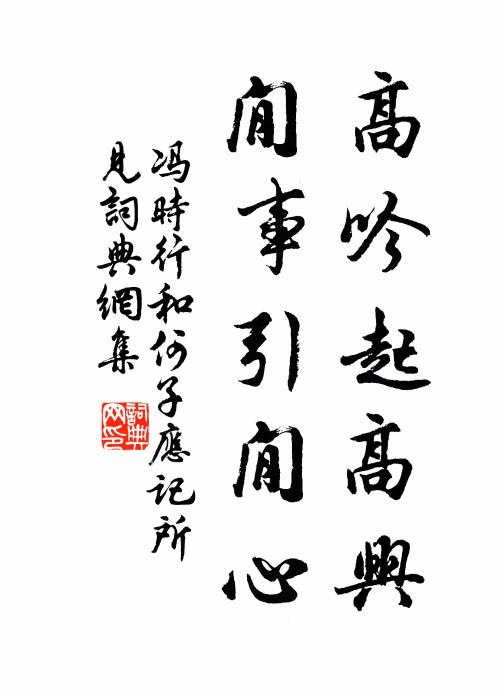 高吟起高興
閒事引閒心
馮時行和何子應記所
見詞典網集
詞典网印